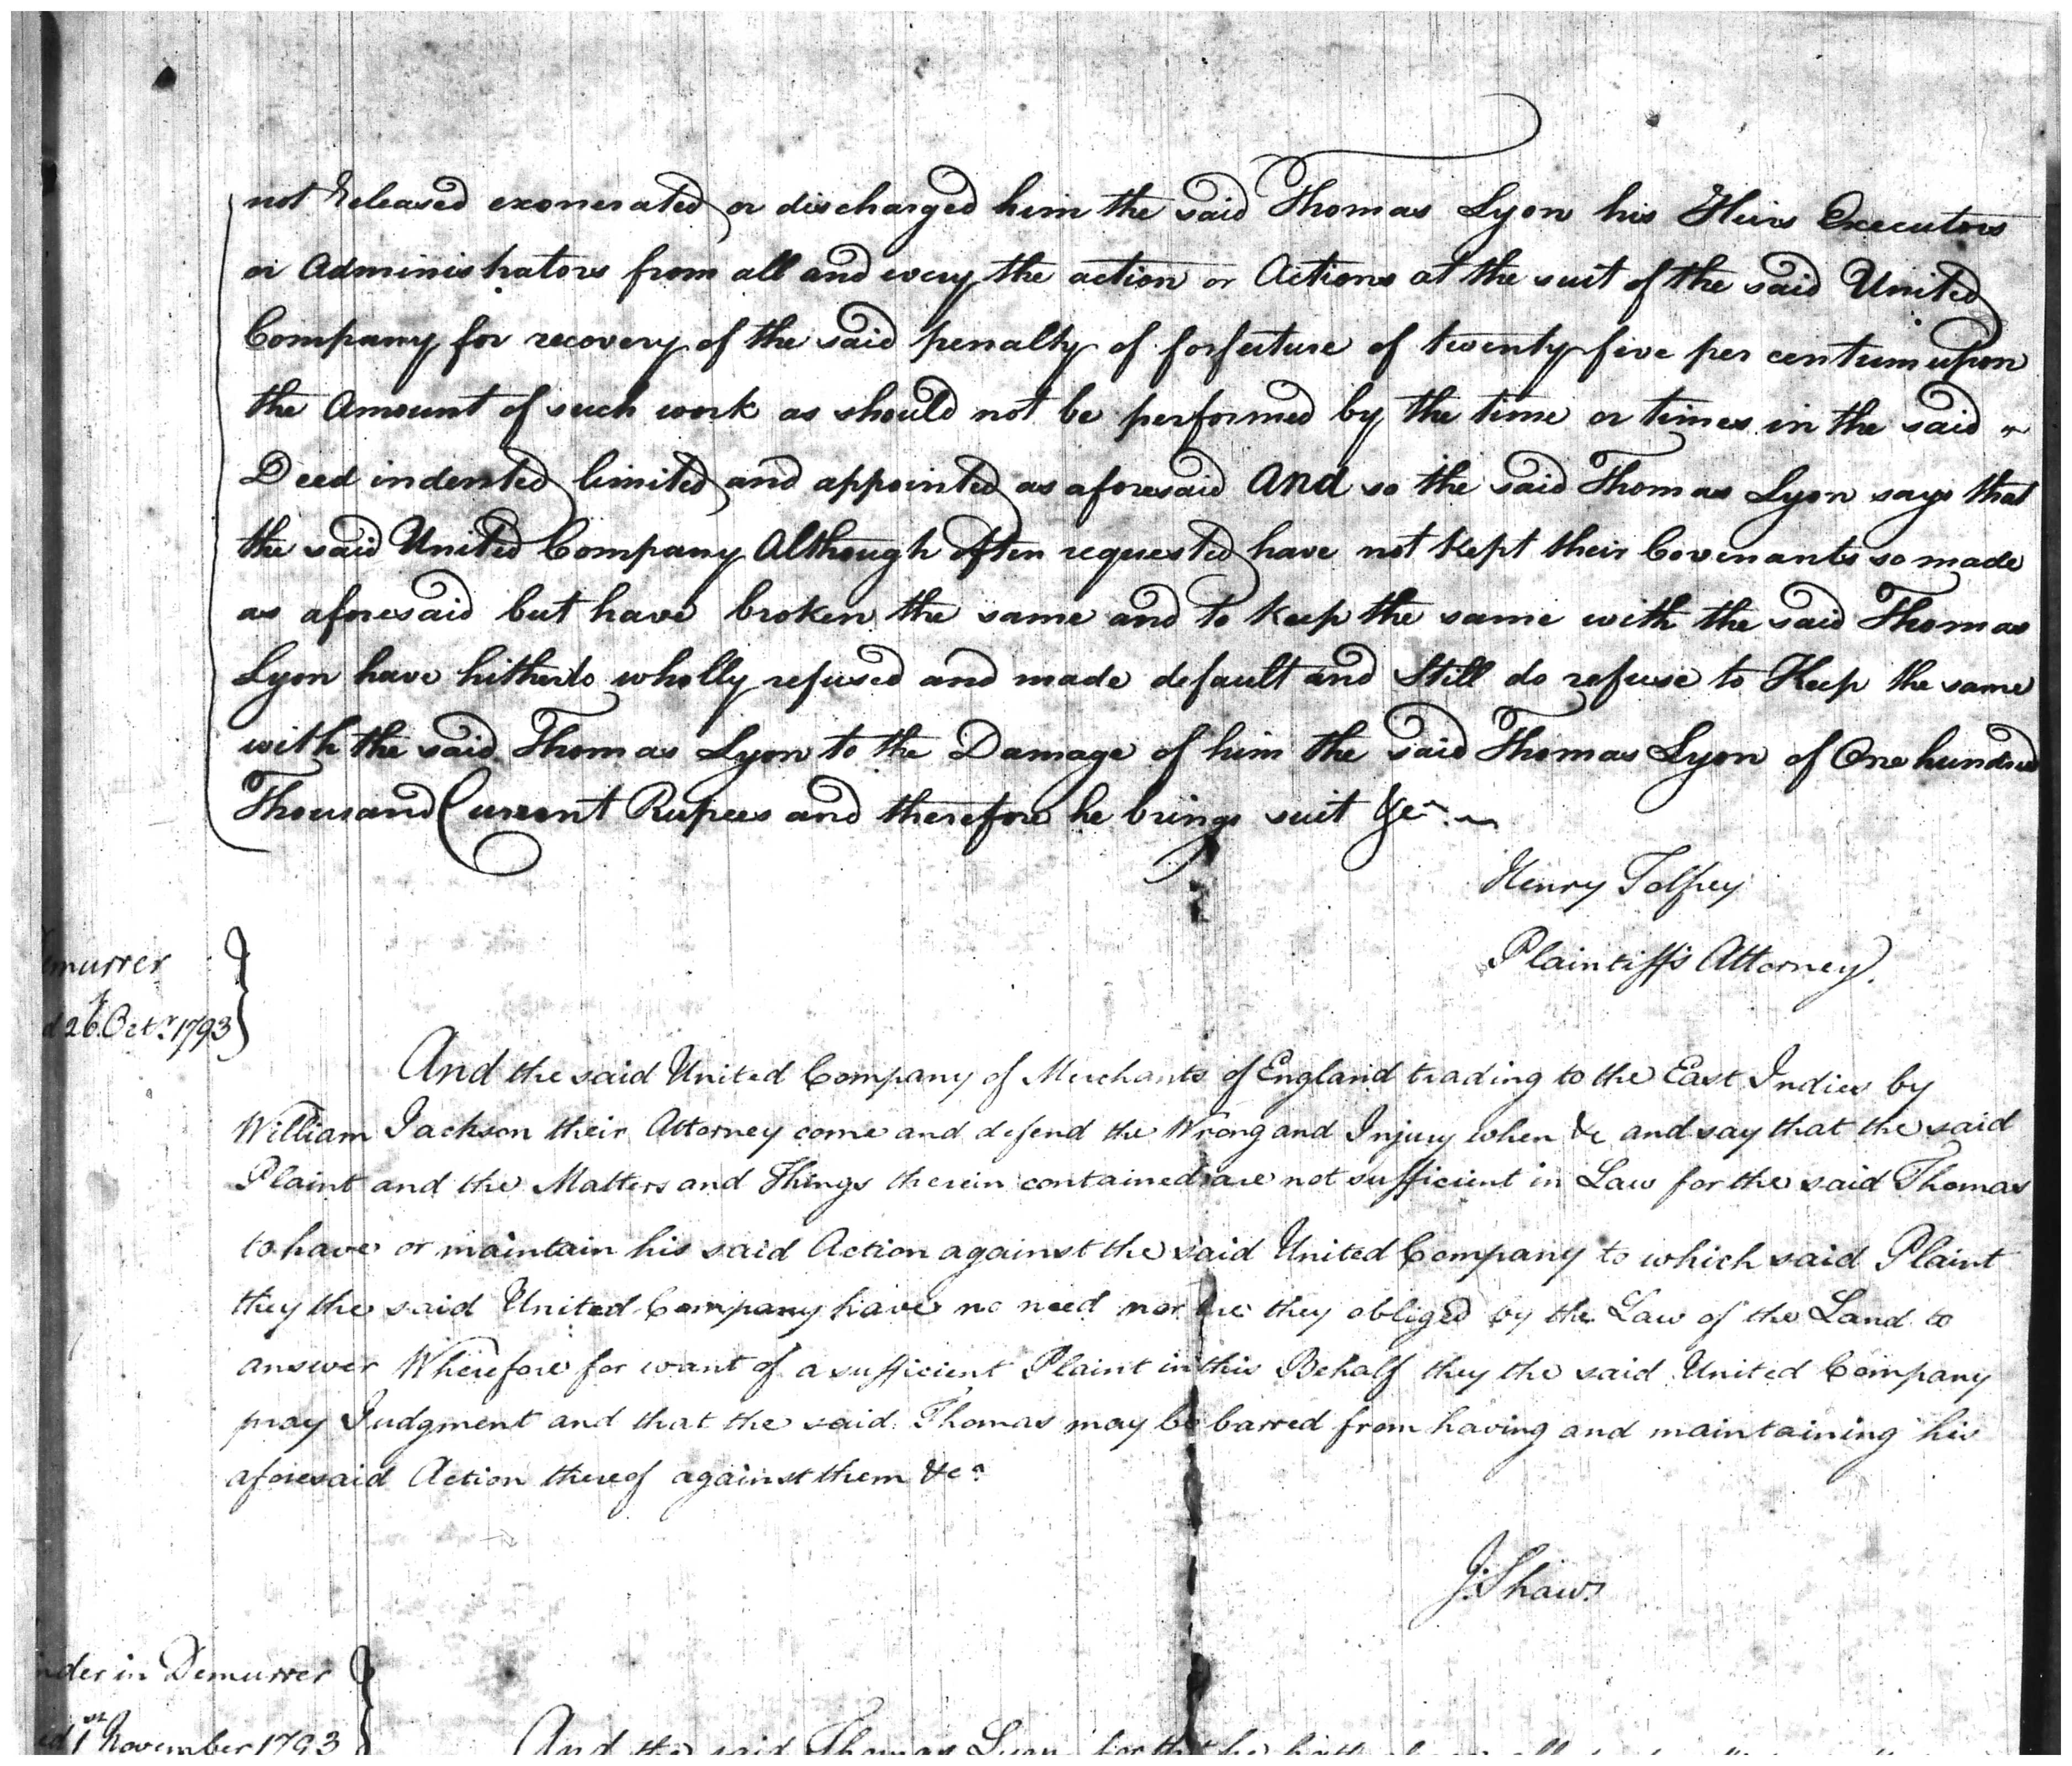 not released exonerated or discharged him the said Thomas Lyon his Heirs Executors
or Administrators from all and every the action or Actions at the suit of the said United
Company for recovery of the said penalty of forfeiture of twenty five per centum upon
the Amount of such work as should not be performed by the time or times in the said
Deed indented limited and appointed as aforesaid And so the said Thomas Lyon says that
the said United Company Although often requested have not kept their Covenants so made
as aforesaid but have broken the same and to keep the same with the said Thomas
Lyon have hitherto wholly refused and made default and Still do refuse to Keep the same
with the said Thomas Lyon to the Damage of him the said Thomas Lyon of One hundred
Thousand Current Rupees and therefore he brings suit &ca.
Henry Tolfrey
Plaintiffs Attorney.
emurrer
d 26. Octr. 1793
And the said United Company of Merchants of England trading to the East Indies by
William Jackson their Attorney come and defend the Wrong and Injury when &c and say that the said
Plaint and the Matters and Things therein contained are not sufficient in Law for the said Thomas
to have or maintain his said Action against the said United Company to which said Plaint
they the said United Company have no need nor are they obliged by the Law of the Land to
answer Wherefore for want of a sufficient Plaint in this Behalf they the said United Company
pray Judgment and that the said Thomas may be barred from having and maintaining his
aforesaid Action thereof against them &ca
J. Shaw.
nder in Demurrer
ed 1st November 1793
And the said Thomas Lyon for that he hath